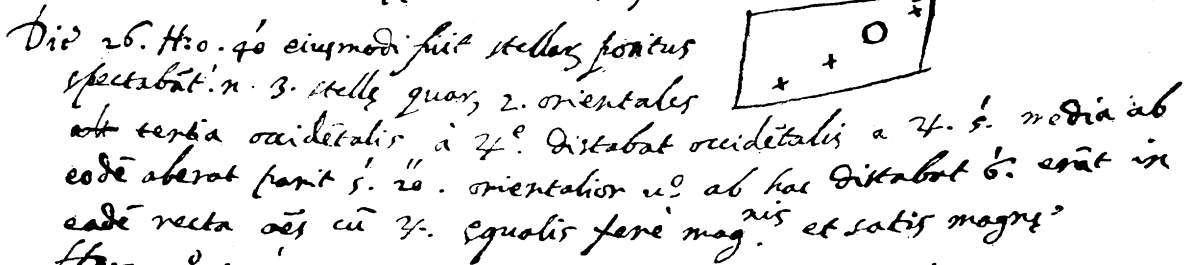 Die 26. H. 0. 40 eiusmodi fuit stellaꝝ positus
spectabāt'. n. 3. stellę quaꝝ 2. orientales
tertia occidētalis à ♃º. distabat occidētalis a ♃. 5'. media ab
eodē aberat pari't 5'. 20''. orientalior uº ab hac distabat 6'. erāt in
eadē recta oēs cū ♃. ęqualis ferè magnis. et satis magnę